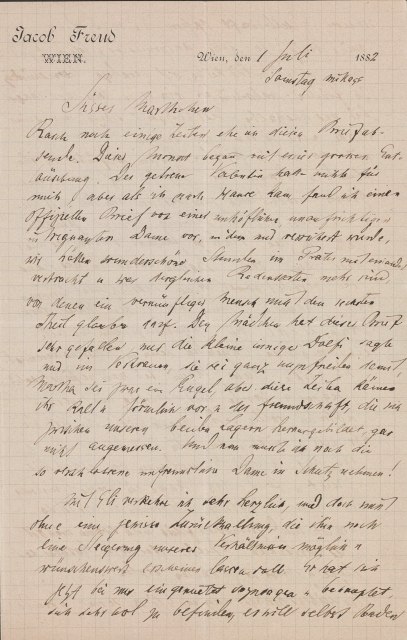 Jacob Freud
WIEN.
Wien, den 1 Juli 1882
Samstag mittags
Süsses Marthchen
Rasch noch einige Zeilen ehe an diesen Brief ab-
sende. Dieser Monat begann mit einer grossen Ent-
täuschung. Der getreue Valentin hatte nichts für
mich, aber als ich nach Hause kam, fand ich einen
offiziellen Brief von einer unhöflichen unaufrichtigen
Dame vor, in dem mir versichert wurde,
wir hätten wunderschöne Stunden im Prater miteinander
verbracht u. was dergleichen Redensarten mehr sind
von denen ein vernünftiger Mensch nicht den
Theil glauben darf. Den Mädchen hat dieser Brief
sehr gefallen, nur die kleine Dolfi sagte
mir im Vertrauen, sie sei ganz unzufrieden damit,
Martha sei zwar ein Engel, aber diese
ihr kalt u. förmlich vor u. der Freundschaft, die sich
zwischen unseren beiden Lagern herausgebildet, gar
nicht angemessen. Und nun muss ich noch die
so unfreundliche Dame in Schutz nehmen!
Mit Eli verkehre ich sehr herzlich, und doch nicht
ohne eine gewisse Zurückhaltung, die ihm noch
eine Steigerung unseres Verhältnisses möglich u
wünschenswert erscheinen lassen soll. Er hat sich
jetzt bei mir u behauptet,
sich sehr wol zu befinden, er will selbst